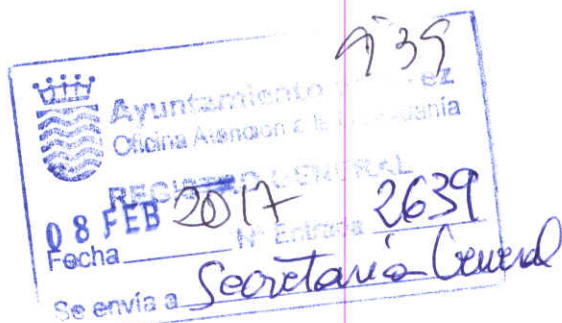 939
Ayuntamiento
Oficina Atención a la Ciudadanía
REGISTRO GENERAL
08 FEB 2017 2639
Fecha Nº Entrada
Se envía a Secretaría General